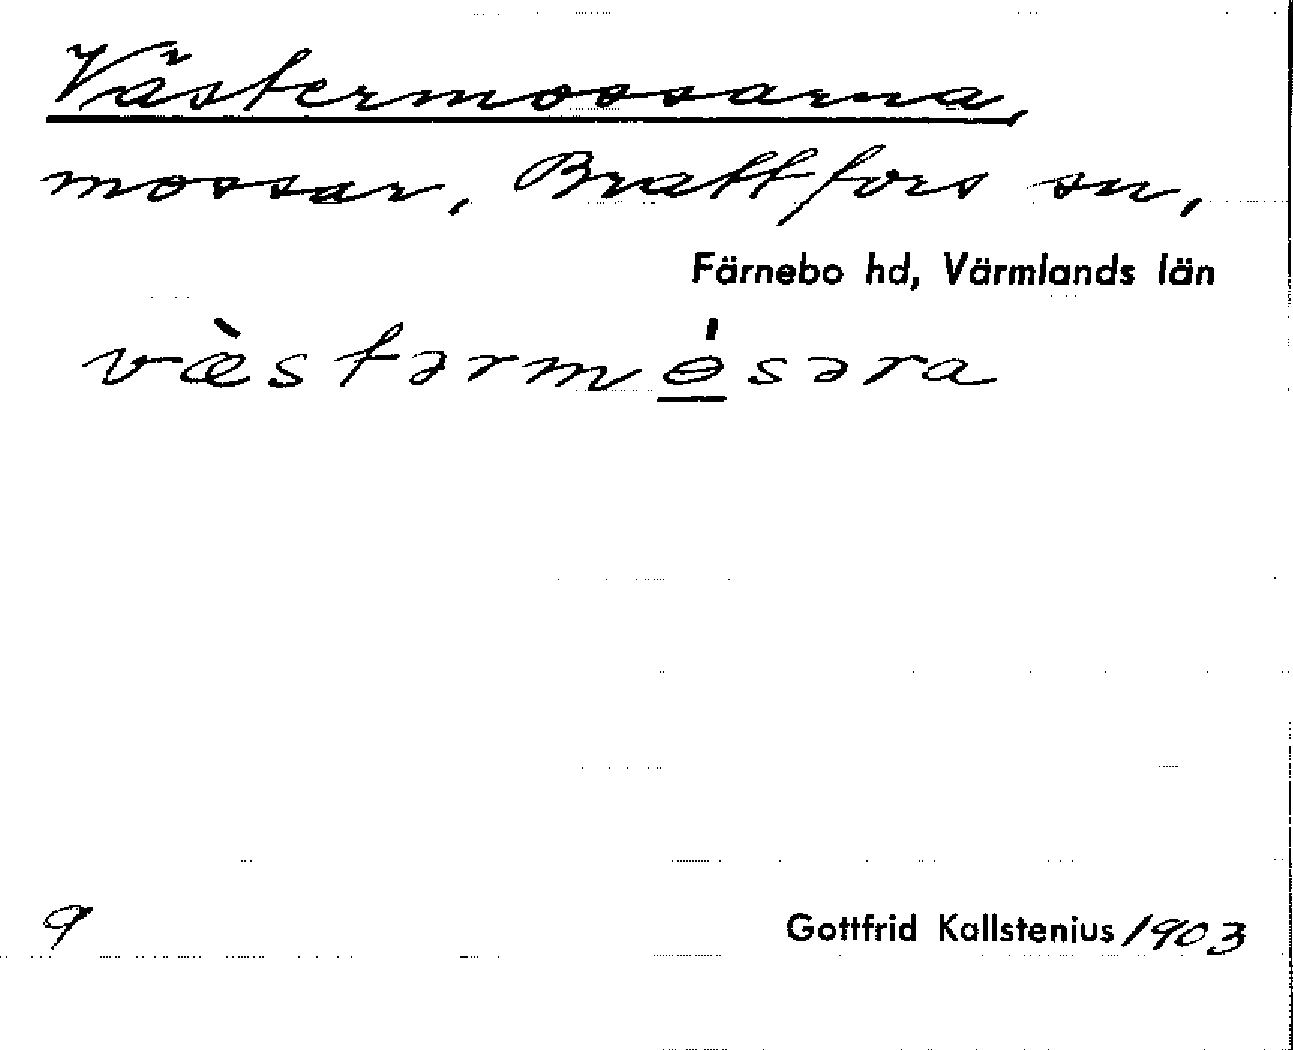 Västermossarna,
mossar, Brattfors sn,
Färnebo hd, Värmlands län
væ̀stərmɵ́səra
9
Gottfrid Kallstenius 1903